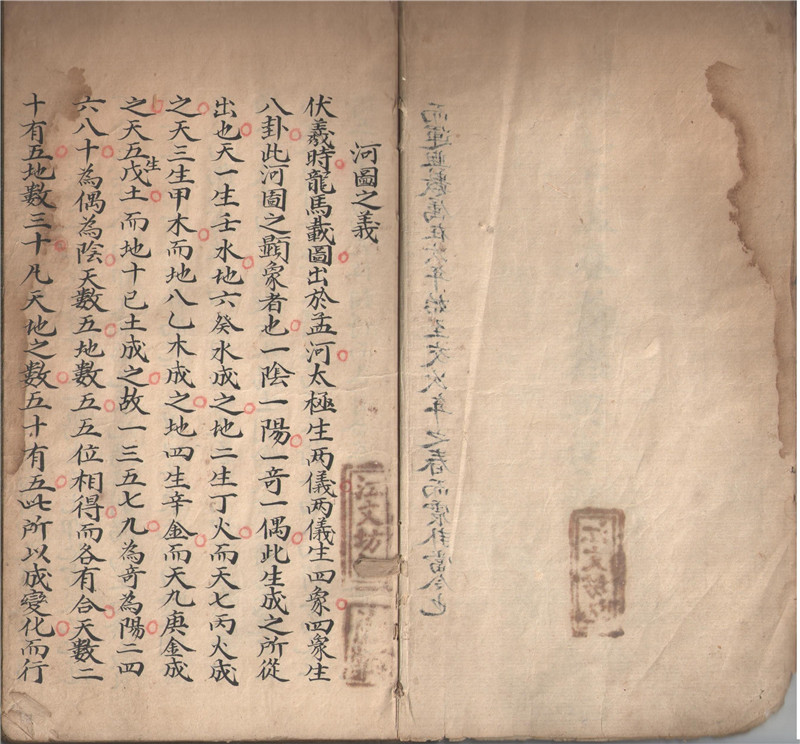 江文坊
河圖之義
江文坊
伏羲時龍馬載圖出於孟河太極生两儀两儀生四象四象生
八卦此河圖之顯象者也一陰一陽一奇一偶此生成之所從
出也天一生壬水地六癸水成之地二生丁火而天七丙火成
之天三生甲木而地八乙木成之地四生辛金而天九庚金成
之天五生戊土而地十己土成之故一三五七九為奇為陽二四
六八十為偶為陰天數五地數五五位相得而各有合天數二
十有五地數三十凡天地之數五十有五此所以成變化而行